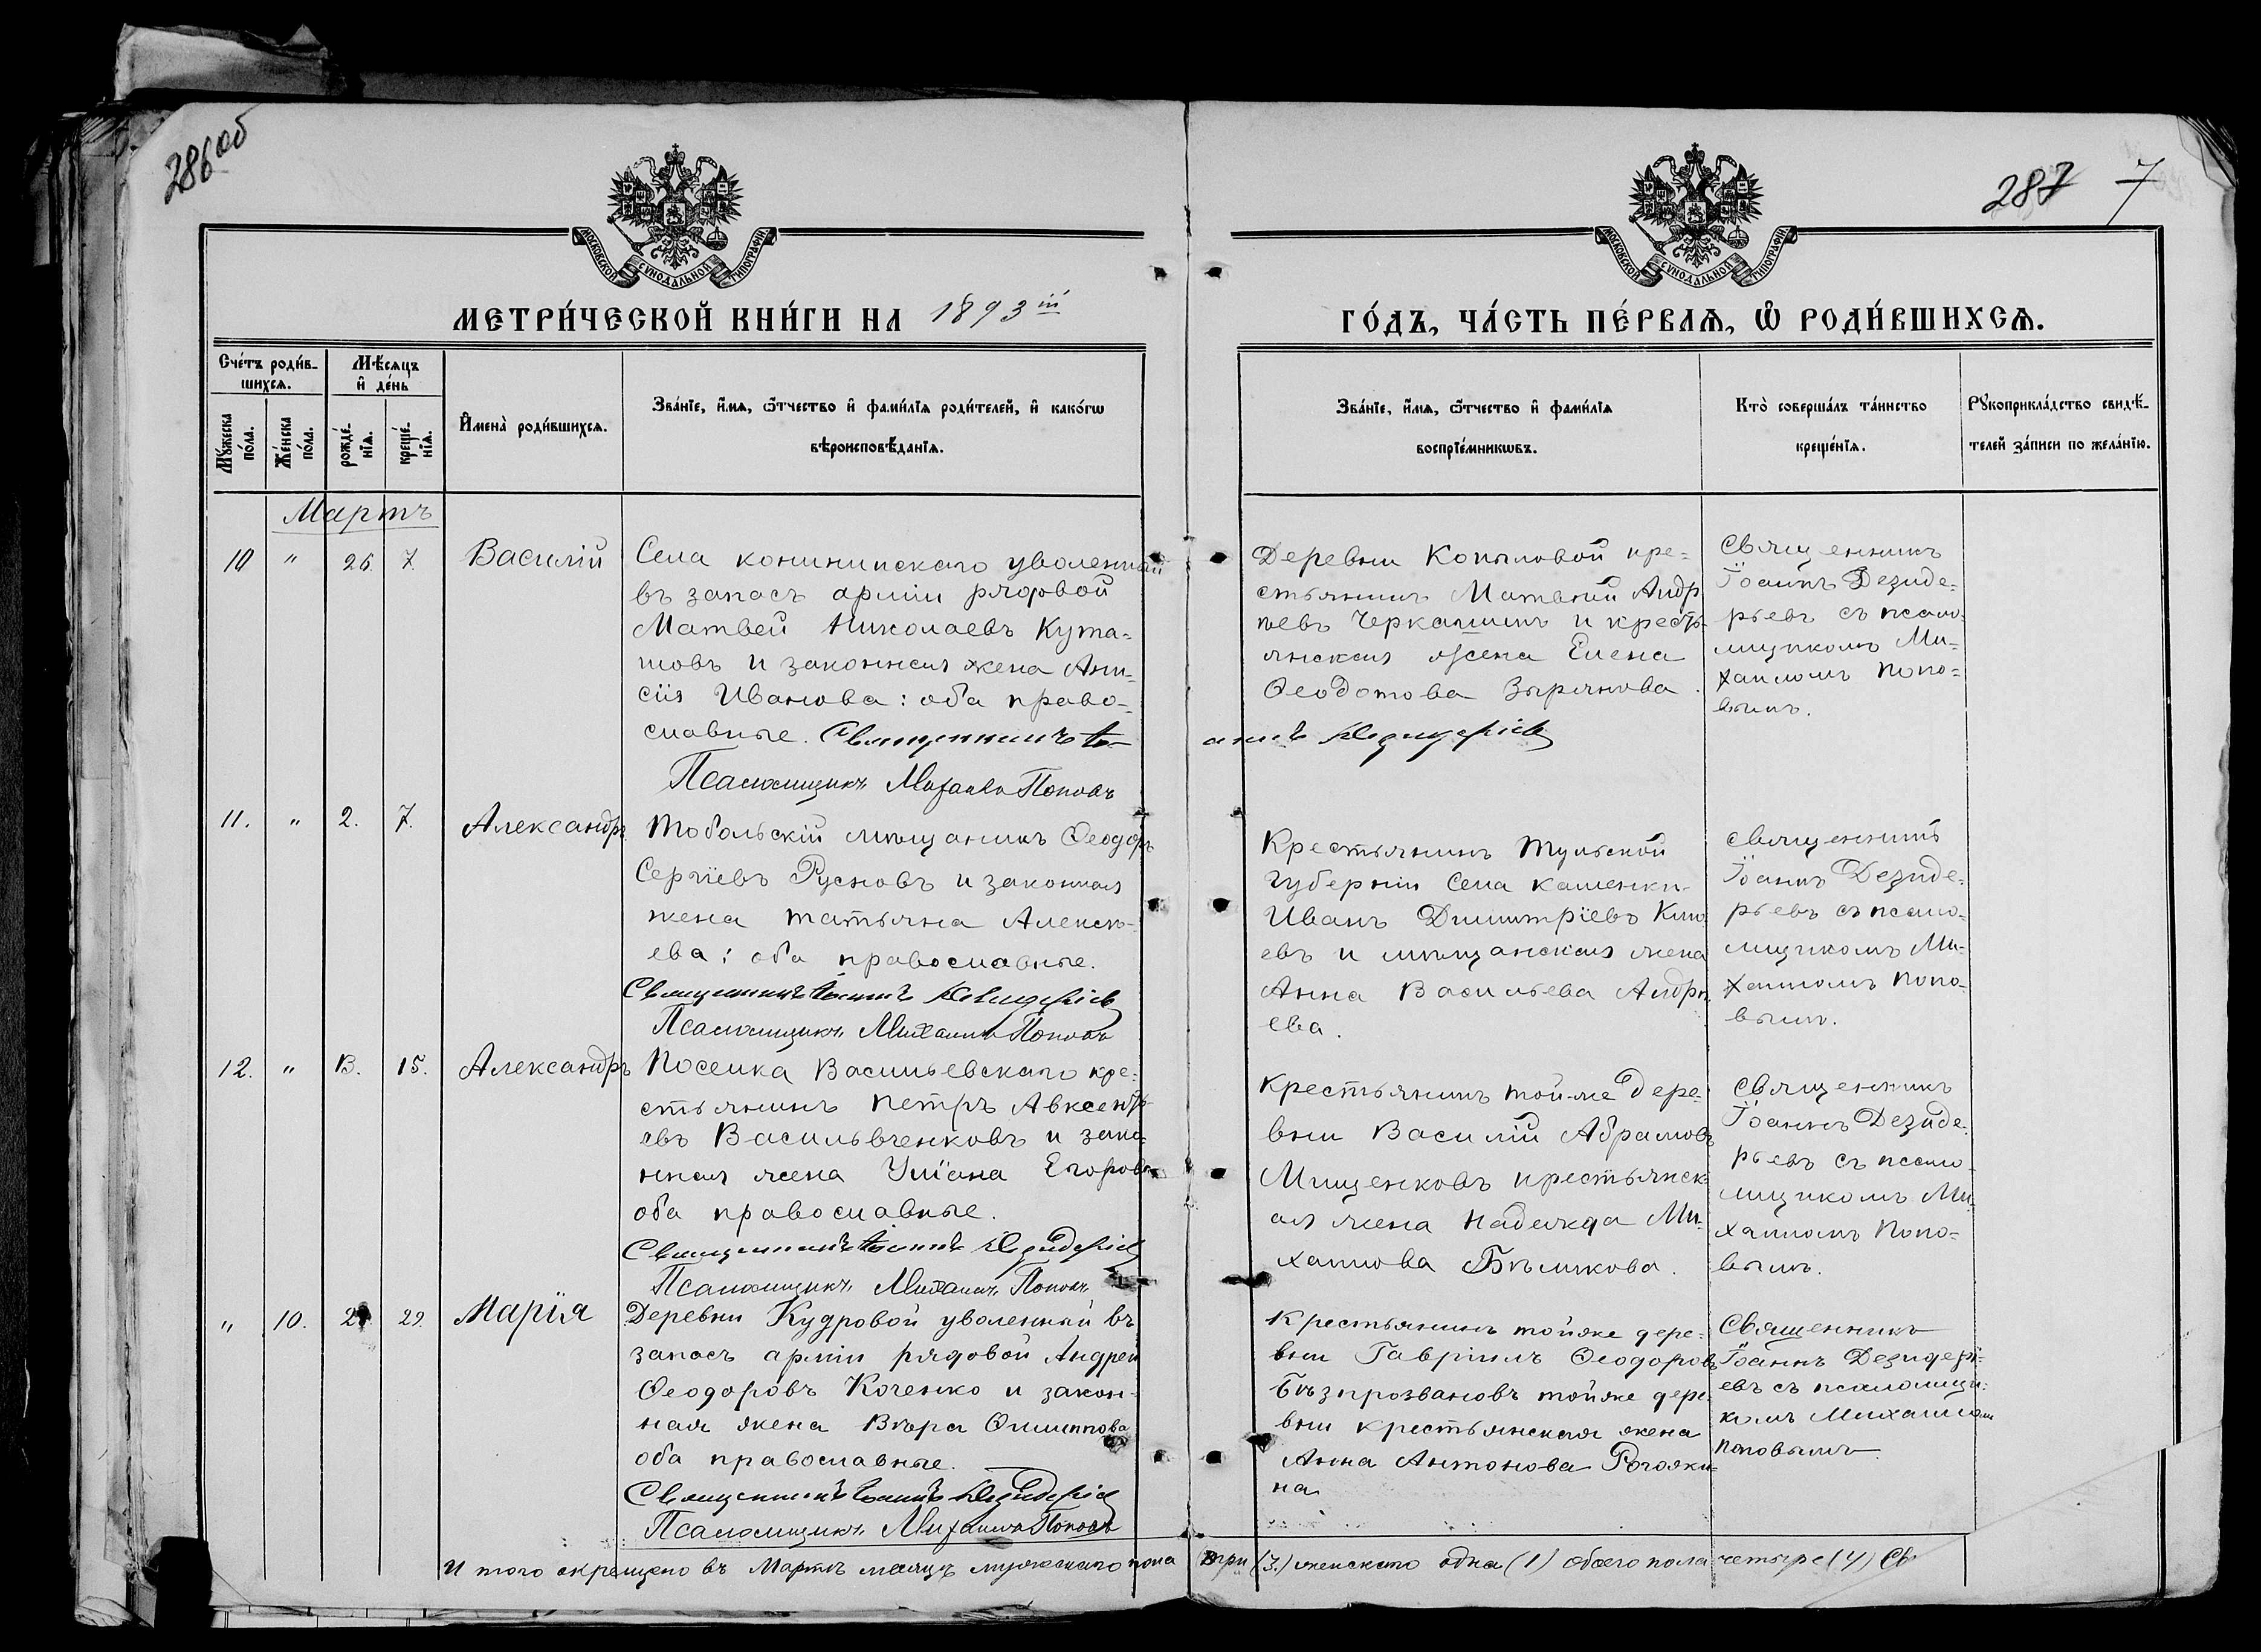 286 об
287 7
МОСКОВСКОЙ СѴНОДАЛЬНОЙ ТИПОГРАФІИ
МОСКОВСКОЙ СѴНОДАЛЬНОЙ ТИПОГРАФІИ
МЕТРИ́ЧЕСКОЙ КНИ́ГИ НА 1893 ій
ГО́ДЪ, ЧА́СТЬ ПЕ́РВАѦ, Ѡ РОДИ́ВШИХСѦ.
Сче́тъ роди́в-
шихсѧ.
Мѣ́сѧцъ
и҆ де́нь
Мꙋ́жеска
по́ла.
Же́нска
по́ла.
рожде́-
нїѧ.
креще́-
нїѧ.
И҆мена̀ роди́вшихсѧ.
Зва́нїе, и҆́мѧ, ѻ҆́тчество и҆ фами́лїѧ роди́телей, и҆ како́гѡ
вѣроисповѣ́данїѧ.
Зва́нїе, и҆́мѧ, ѻ҆́тчество и҆ фами́лїѧ
воспрїе́мникѡвъ.
Кто̀ соверша́лъ та́инство
креще́нїѧ.
Рꙋкоприкла́дство свидѣ́-
телей за́писи по жела́нїю.
Мартъ
10 " 26 7. Василій
Села конининскаго уволенный
въ запасъ арміи рядовой
Матвей Николаевъ Кута-
товъ и законная жена Ани-
сія Иванова: оба право-
славные. Священникъ Іо-
аннъ Дезидеріев
Псаломщикъ Михаилъ Поповъ
Деревни Копыловой кре-
стьянинъ Матвѣй Андр
ѣевъ Черкашинъ и кресть-
янская жена Елена
Ѳеодотова Зырянова.
Священникъ
Іоаннъ Дезиде-
рьевъ съ псало-
мщикомъ Ми-
хаиломъ Попо-
вымъ.
11. " 2. 7. Александръ
Тобольскій мѣщанинъ Ѳеодоръ
Сергіевъ Русновъ и законная
жена Татьяна Алексѣ-
ева: оба православные.
Священникъ Іоаннъ Дезидеріев
Псаломщикъ Михаилъ Поповъ
Крестьянинъ Тульской
губерніи Села каменки-
Иванъ Димитріевъ
евъ и мѣщанская жена
Анна Васильева Андрѣ
ева.
Священникъ
Іоаннъ Дезиде-
рьевъ съ псало-
мщикомъ Ми-
хаиломъ Попо-
вымъ.
12. " 13. 15. Александръ
Поселка Васильевскаго кре-
стьянинъ Петръ Авксенть
евъ Васильвченковъ и зако-
нная жена Уліана Егорова
оба православные.
Священникъ Іоаннъ Дезидеріев
Псаломщикъ Михаилъ Поповъ
Крестьянинъ тойже дере-
вни Василій Абрамовъ
Мищенковъ крестьянск-
ая жена Надежда Ми-
хаилова Бѣликова.
Священникъ
Іоаннъ Дезиде-
рьевъ съ псало-
мщикомъ Ми-
хаиломъ Попо-
вымъ.
" 10. 29. Марія
Деревни Кудровой уволенный въ
запасъ арміи рядовой Андрей
Ѳеодоровъ Коченко и закон-
ная жена Вѣра Филиппова
оба православные.
Священникъ Іоаннъ Дезидеріев
Псаломщикъ Михаилъ Поповъ
Крестьянинъ тойже дере-
вни Гавріилъ Ѳеодоровъ
Бѣзпрозвановъ тойже дере-
вни крестьянская жена
Анна Антонова Рогожки-
на
Священникъ
Іоаннъ Дезидері-
евъ съ псаломщи-
комъ Михаиломъ
Поповымъ
И того окрещено въ Мартѣ месяцѣ мужескаго пола три (3.) женскаго одна (1) обоего пола четыре (4) Св